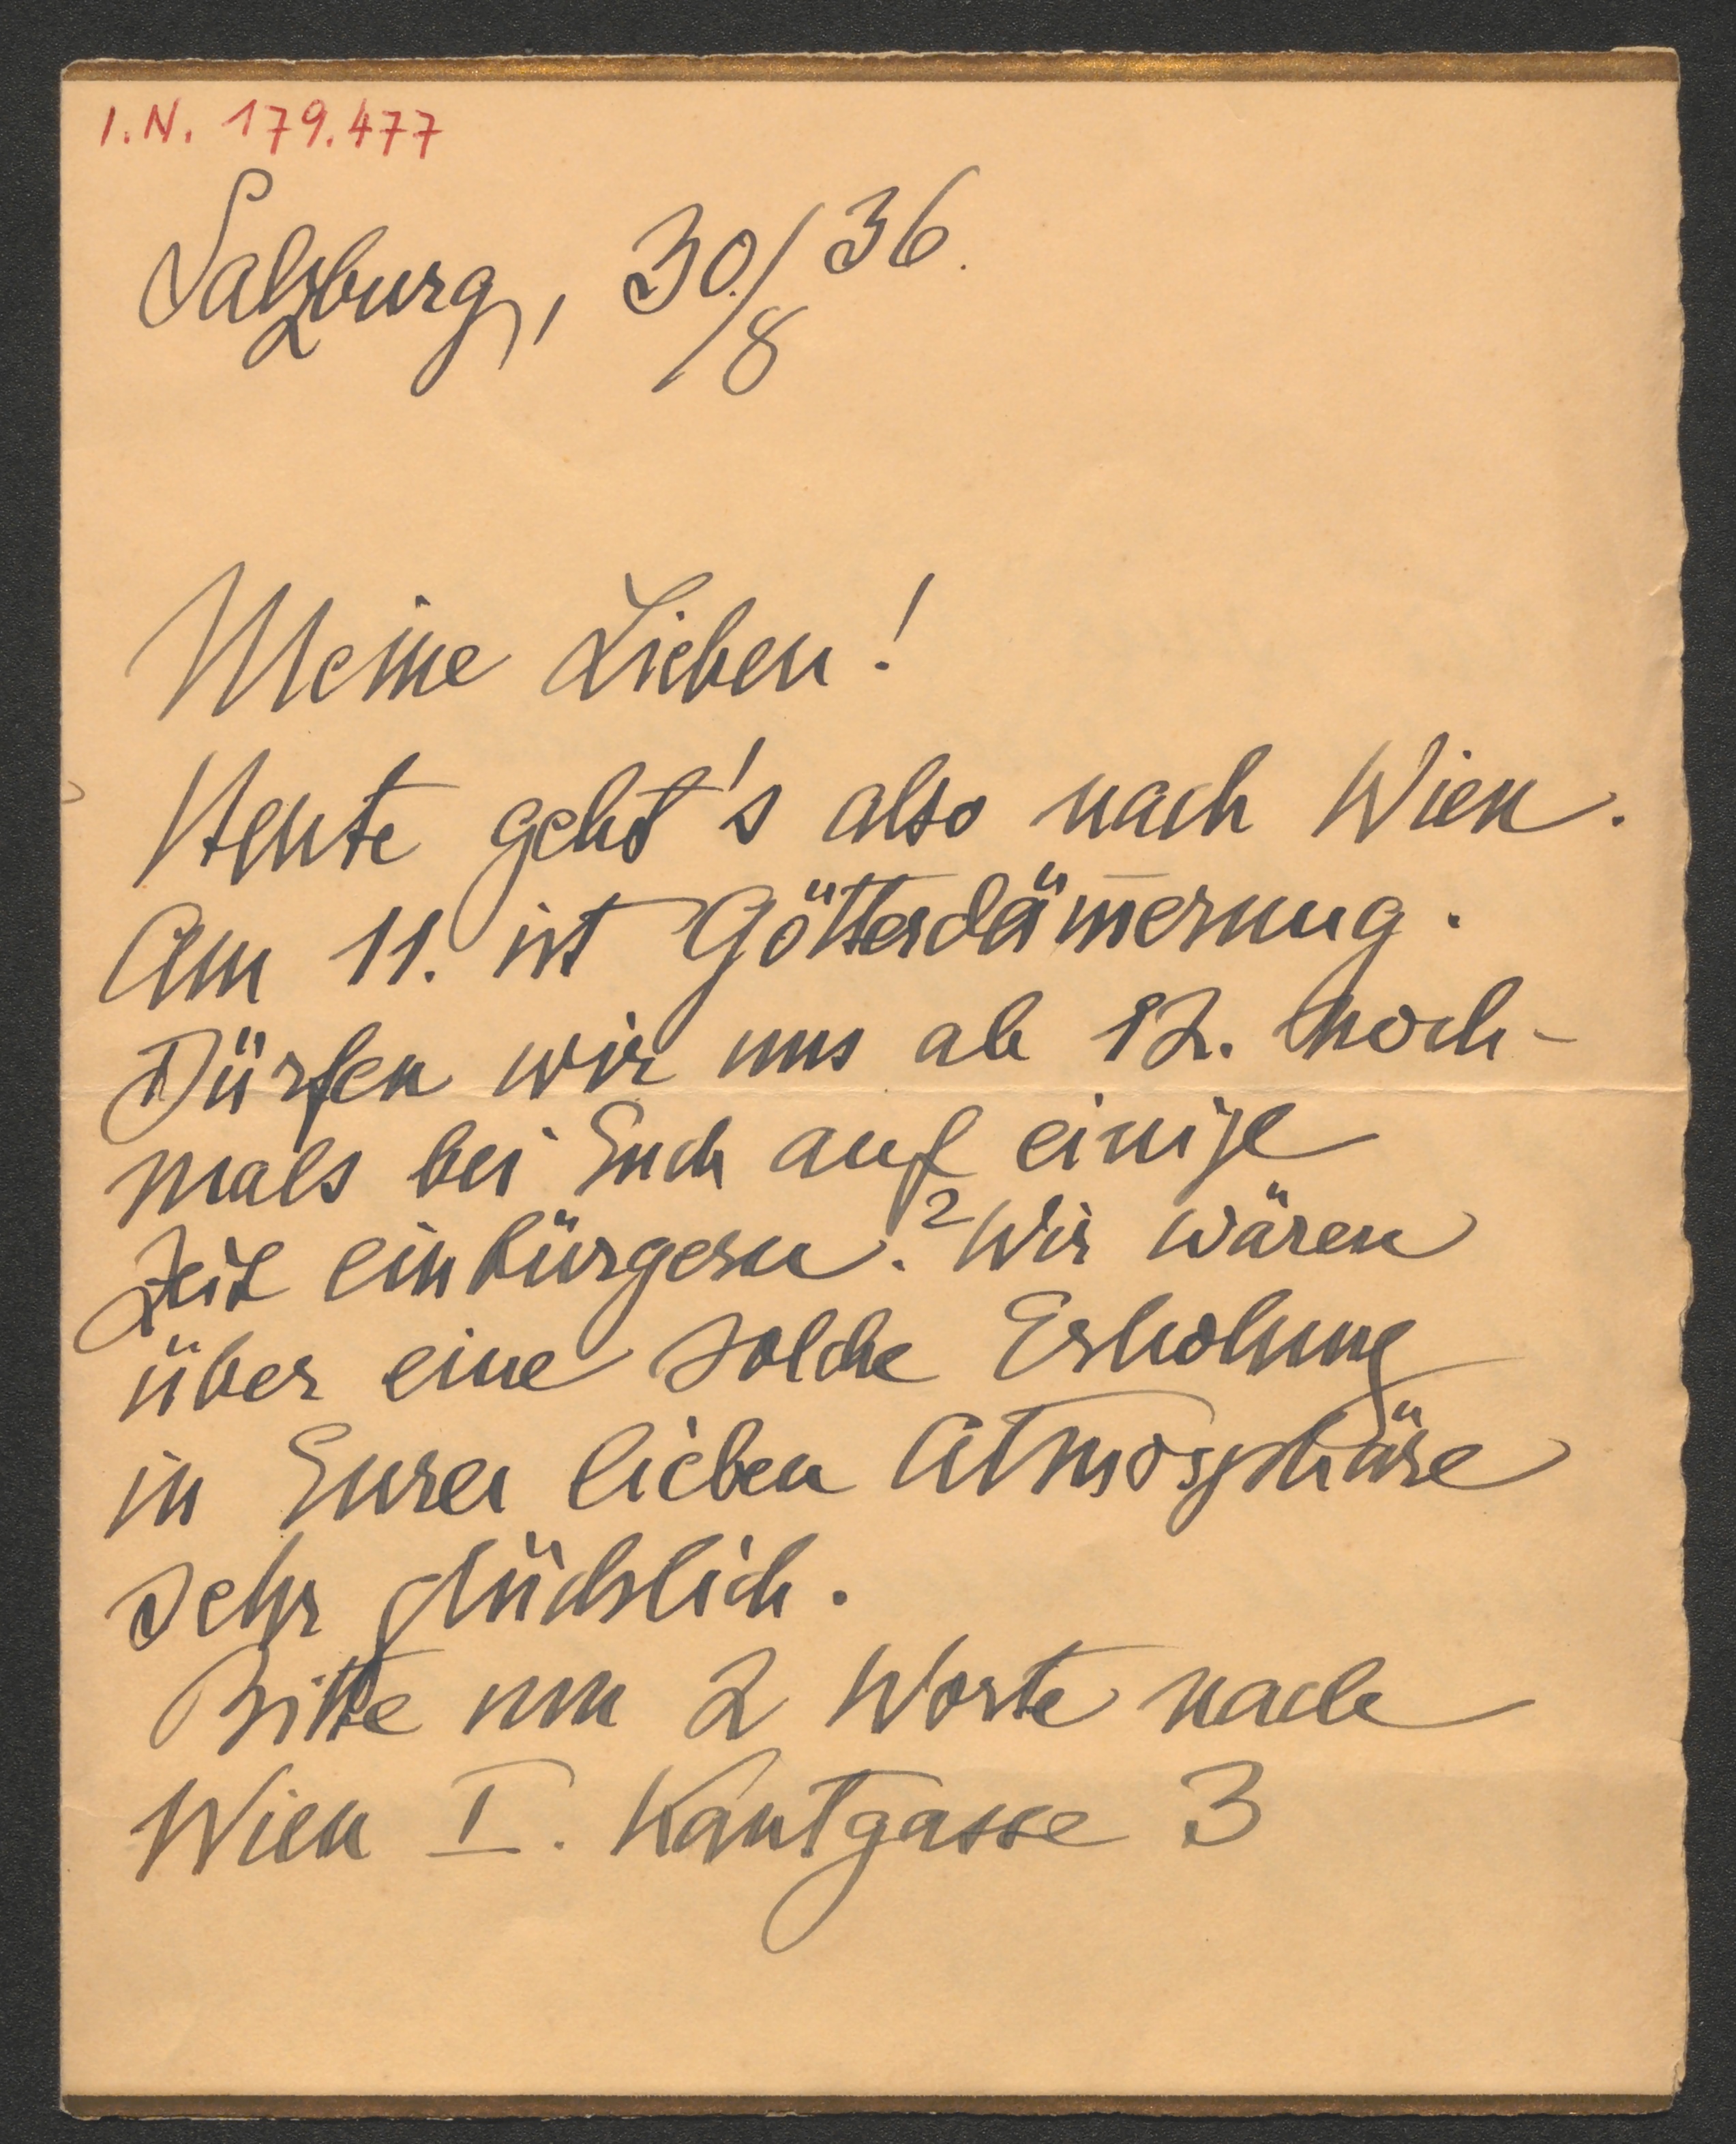 I.N. 179.477
Salzburg, 30./8 36.
Meine Lieben!
Heute geht's also nach Wien.
Am 11. ist Götterdäm̅erung.
Dürfen wir uns ab 12. noch-
mals bei Euch auf einige
Zeit einbürgern? Wir wären
über eine solche Erholung
in Eurer lieben Atmosphäre
sehr glücklich.
Bitte um 2 Worte nach
Wien I. Kantgasse 3